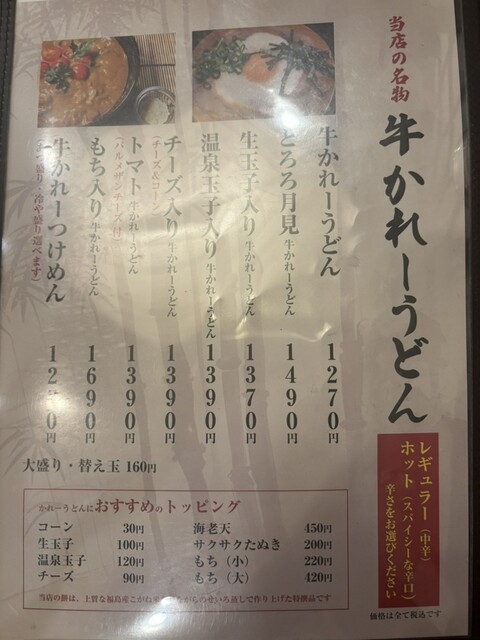 当店の名物
牛かれーうどん
レギュラー(中辛)
ホット(スパイシーな辛口)
辛さをお選びください
牛かれーうどん 1270円
とろろ月見 牛かれーうどん 1490円
生玉子入り 牛かれーうどん 1370円
温泉玉子入り 牛かれーうどん 1390円
チーズ入り 牛かれーうどん 1390円
(チーズ&コーン)
トマト 牛かれーうどん 1390円
(パルメザンチーズ付)
もち入り 牛かれーうどん 1690円
牛かれーつけめん
盛り・冷や盛り選べます)
大盛り・替え玉 160円
かれーうどんにおすすめのトッピング
コーン 30円
生玉子 100円
温泉玉子 120円
チーズ 90円
海老天 450円
サクサクたぬき 200円
もち(小) 220円
もち(大) 420円
当店の餅は、上質な福島産こがねながらのせいろ蒸しで作り上げた特撰品です
価格は全て税込です